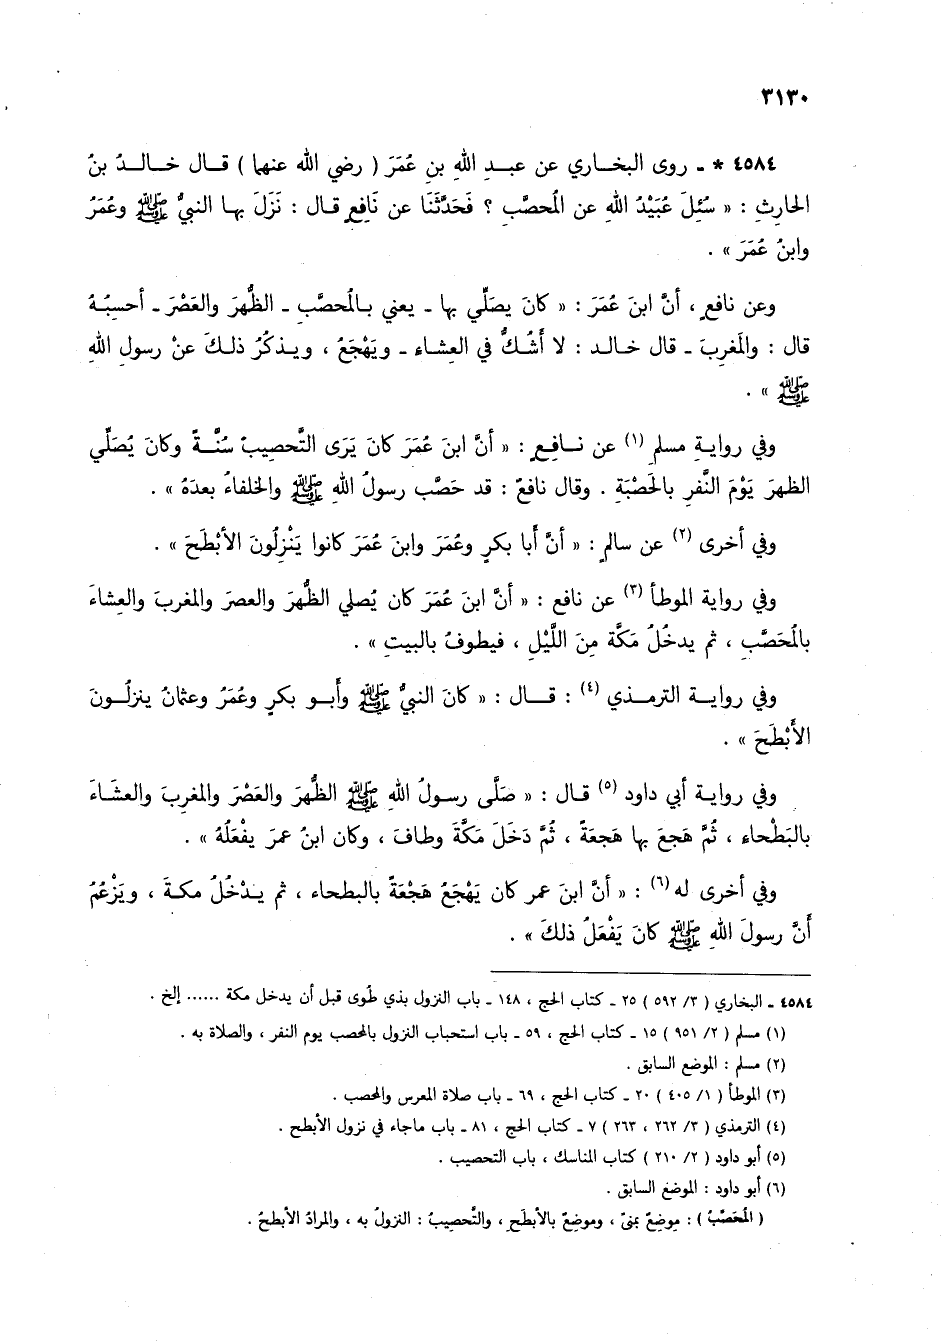 ٣١٣٠
٤٥٨٤ * ـ روى البخـاري عن عبـدِ اللهِ بنِ عُمَرَ ( رضي الله عنهما ) قـال خـالـدُ بنُ
الحارثِ : « سُئِلَ عُبَيْدُ اللهِ عن المُحصَّبِ ؟ فَحَدَّثَنَا عن نَافِعٍ قال : نَزَلَ بهـا النبيُّ ﷺ وعُمَرُ
وابنُ عُمَرَ » .
وعن نافعٍ ، أنَّ ابنَ عُمَرَ : « كانَ يصَلِّي بها ـ يعني بـالمُحصَّبِ ـ الظُّهرَ والعَصْرَ ـ أحسِبُـهُ
قال : والمَغربَ ـ قال خـالـد : لا أَشُـكُّ في العِشـاء ـ ويَهْجَعُ ، ويـذكُرُ ذلـكَ عنْ رسولِ اللهِ
ﷺ » .
وفي روايـةِ مسلمٍ (١) عن نـافِعٍ : « أنَّ ابنَ عُمَرَ كانَ يَرَى التَّحصيبَ سُنَّـةً وكانَ يُصَلِّي
الظهرَ يَوْمَ النَّفرِ بالحَصْبَةِ . وقال نافعٌ : قد حَصَّب رسولُ اللهِ ﷺ والخلفاءُ بعدَهُ » .
وفي أخرى (٢) عن سالمٍ : « أنَّ أبا بكرٍ وعُمَرَ وابنَ عُمَرَ كانوا يَنْزِلُونَ الأبْطَحَ » .
وفي رواية الموطأ (٣) عن نافع : « أنَّ ابنَ عُمَرَ كان يُصلي الظُّهرَ والعصرَ والمغربَ والعِشاءَ
بالمُحَصَّبِ ، ثم يدخُلُ مَكَّة مِنَ اللَّيْلِ ، فيطوفُ بالبيتِ » .
وفي روايـة الترمـذي (٤) : قـال : « كانَ النبيُّ ﷺ وأَبـو بكرٍ وعُمَرُ وعثمانُ ينزلُـونَ
الأَبْطَحَ » .
وفي روايـة أبي داود (٥) قـال : « صَلَّى رسـولُ اللهِ ﷺ الظُّهرَ والعَصْرَ والمغرِبَ والعشَـاءَ
بالبَطْحاء ، ثُمَّ هَجعَ بها هَجعَةً ، ثُمَّ دَخَلَ مَكَّةَ وطافَ ، وكان ابنُ عمرَ يفْعَلُهُ » .
وفي أخرى له (٦) : « أنَّ ابنَ عمر كان يَهْجَعُ هَجْعَةً بالبطحاء ، ثم يـدْخُلُ مكـةَ ، ويَزْعُمُ
أَنَّ رسولَ اللهِ ﷺ كانَ يَفْعَلُ ذلكَ » .
٤٥٨٤ ـ البخاري ( ٣/ ٥٩٢ ) ٢٥ ـ كتاب الحج ، ١٤٨ ـ باب النزول بذي طُوى قبل أن يدخل مكة ...... إلخ .
(١) مسلم ( ٢/ ٩٥١ ) ١٥ ـ كتاب الحج ، ٥٩ ـ باب استحباب النزول بالمحصب يوم النفر ، والصلاة به .
(٢) مسلم : الموضع السابق .
(٣) الموطأ ( ١/ ٤٠٥ ) ٢٠ ـ كتاب الحج ، ٦٩ ـ باب صلاة المعرس والمحصب .
(٤) الترمذي ( ٣/ ٢٦٢ ، ٢٦٣ ) ٧ ـ كتاب الحج ، ٨١ ـ باب ماجاء في نزول الأبطح .
(٥) أبو داود ( ٢/ ٢١٠ ) كتاب المناسك ، باب التحصيب .
(٦) أبو داود : الموضع السابق .
( المُحَصَّبُ ) : موضِعٌ بمنىً ، وموضِعٌ بالأبطَحِ ، والتَّحصيبُ : النزولُ به ، والمرادُ الأبطحُ .